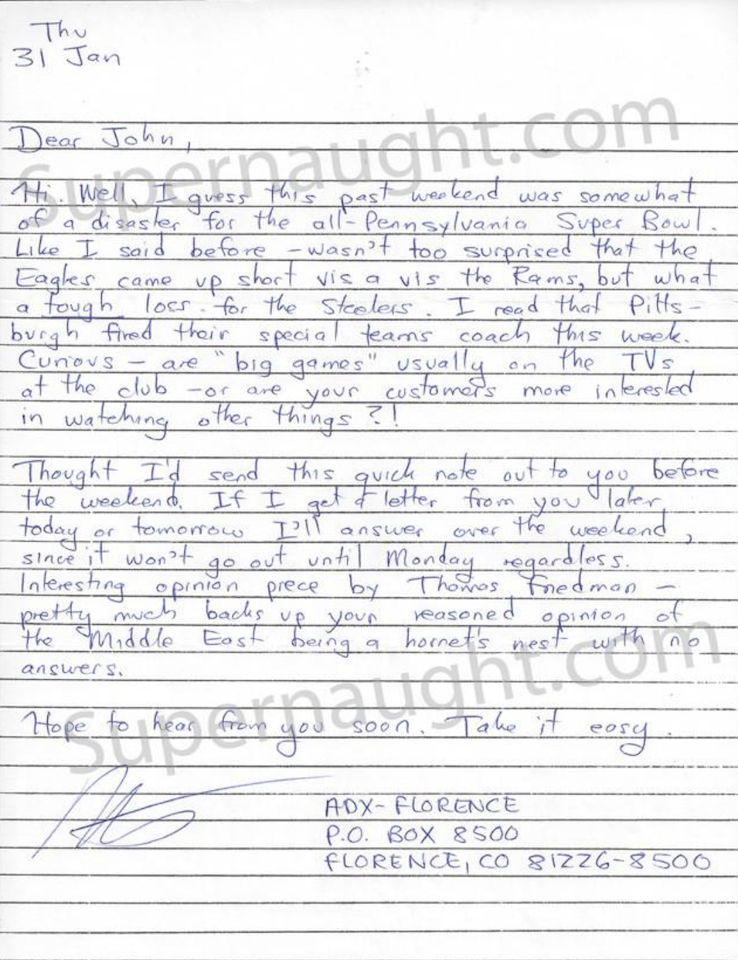 Thu
31 Jan
Dear John,
Hi. Well, I guess this past weekend was somewhat
of a disaster for the all-Pennsylvania Super Bowl.
Like I said before - wasn't too surprised that the
Eagles came up short vis a vis the Rams, but what
a tough loss for the Steelers. I read that Pitts-
burgh fired their special teams coach this week.
Curious - are "big games" usually on the TVs
at the club - or are your customers more interested
in watching other things?!
Thought I'd send this quick note out to you before
the weekend. If I get a letter from you later
today or tomorrow I'll answer over the weekend,
since it won't go out until Monday regardless.
Interesting opinion piece by Thomas Friedman -
pretty much backs up your reasoned opinion of
the Middle East being a hornet's nest with no
answers.
Hope to hear from you soon. Take it easy.
ADX-FLORENCE
P.O. BOX 8500
FLORENCE, CO 81226-8500
Supernaught.com
Supernaught.com